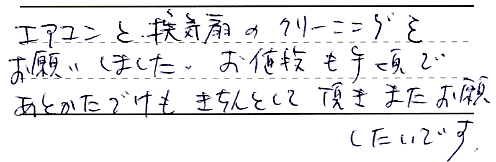 エアコンと換気扇のクリーニングを
お願いしました。お値段も手頃で
あとかたづけもきちんとして頂きまたお願
したいです。